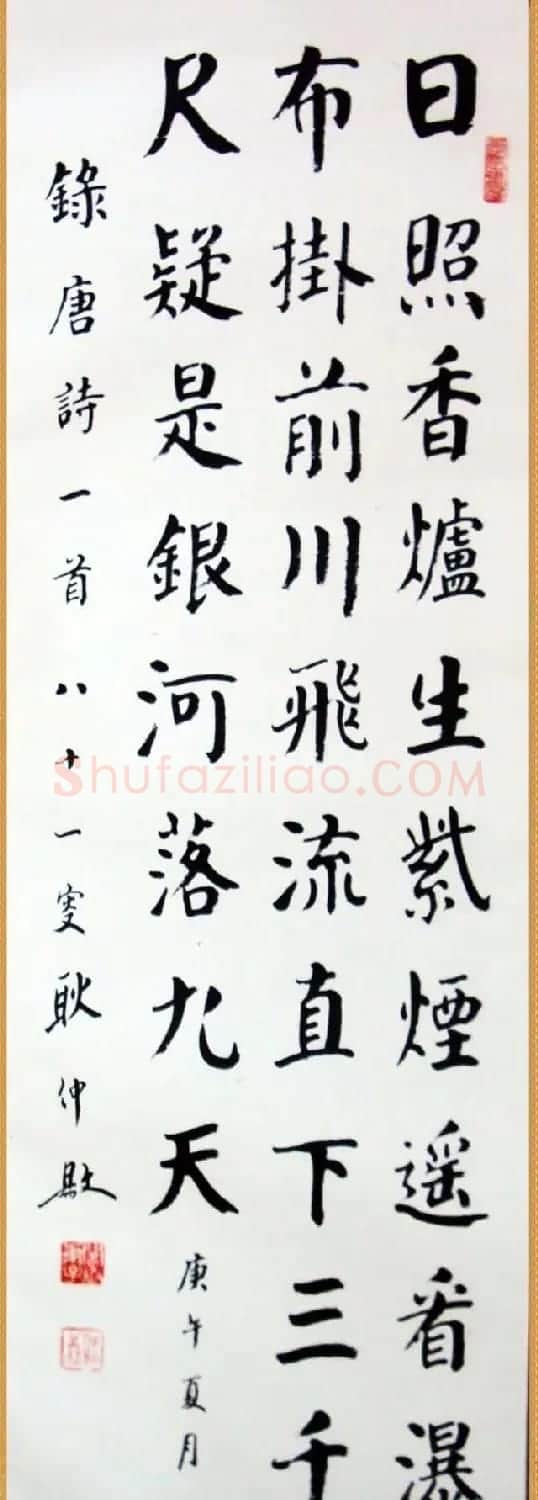 日照香爐生紫煙遥看瀑
布掛前川飛流直下三千
尺疑是銀河落九天
庚午夏月
錄唐詩一首八十一叟耿仲敭
Shufaziliao.COM